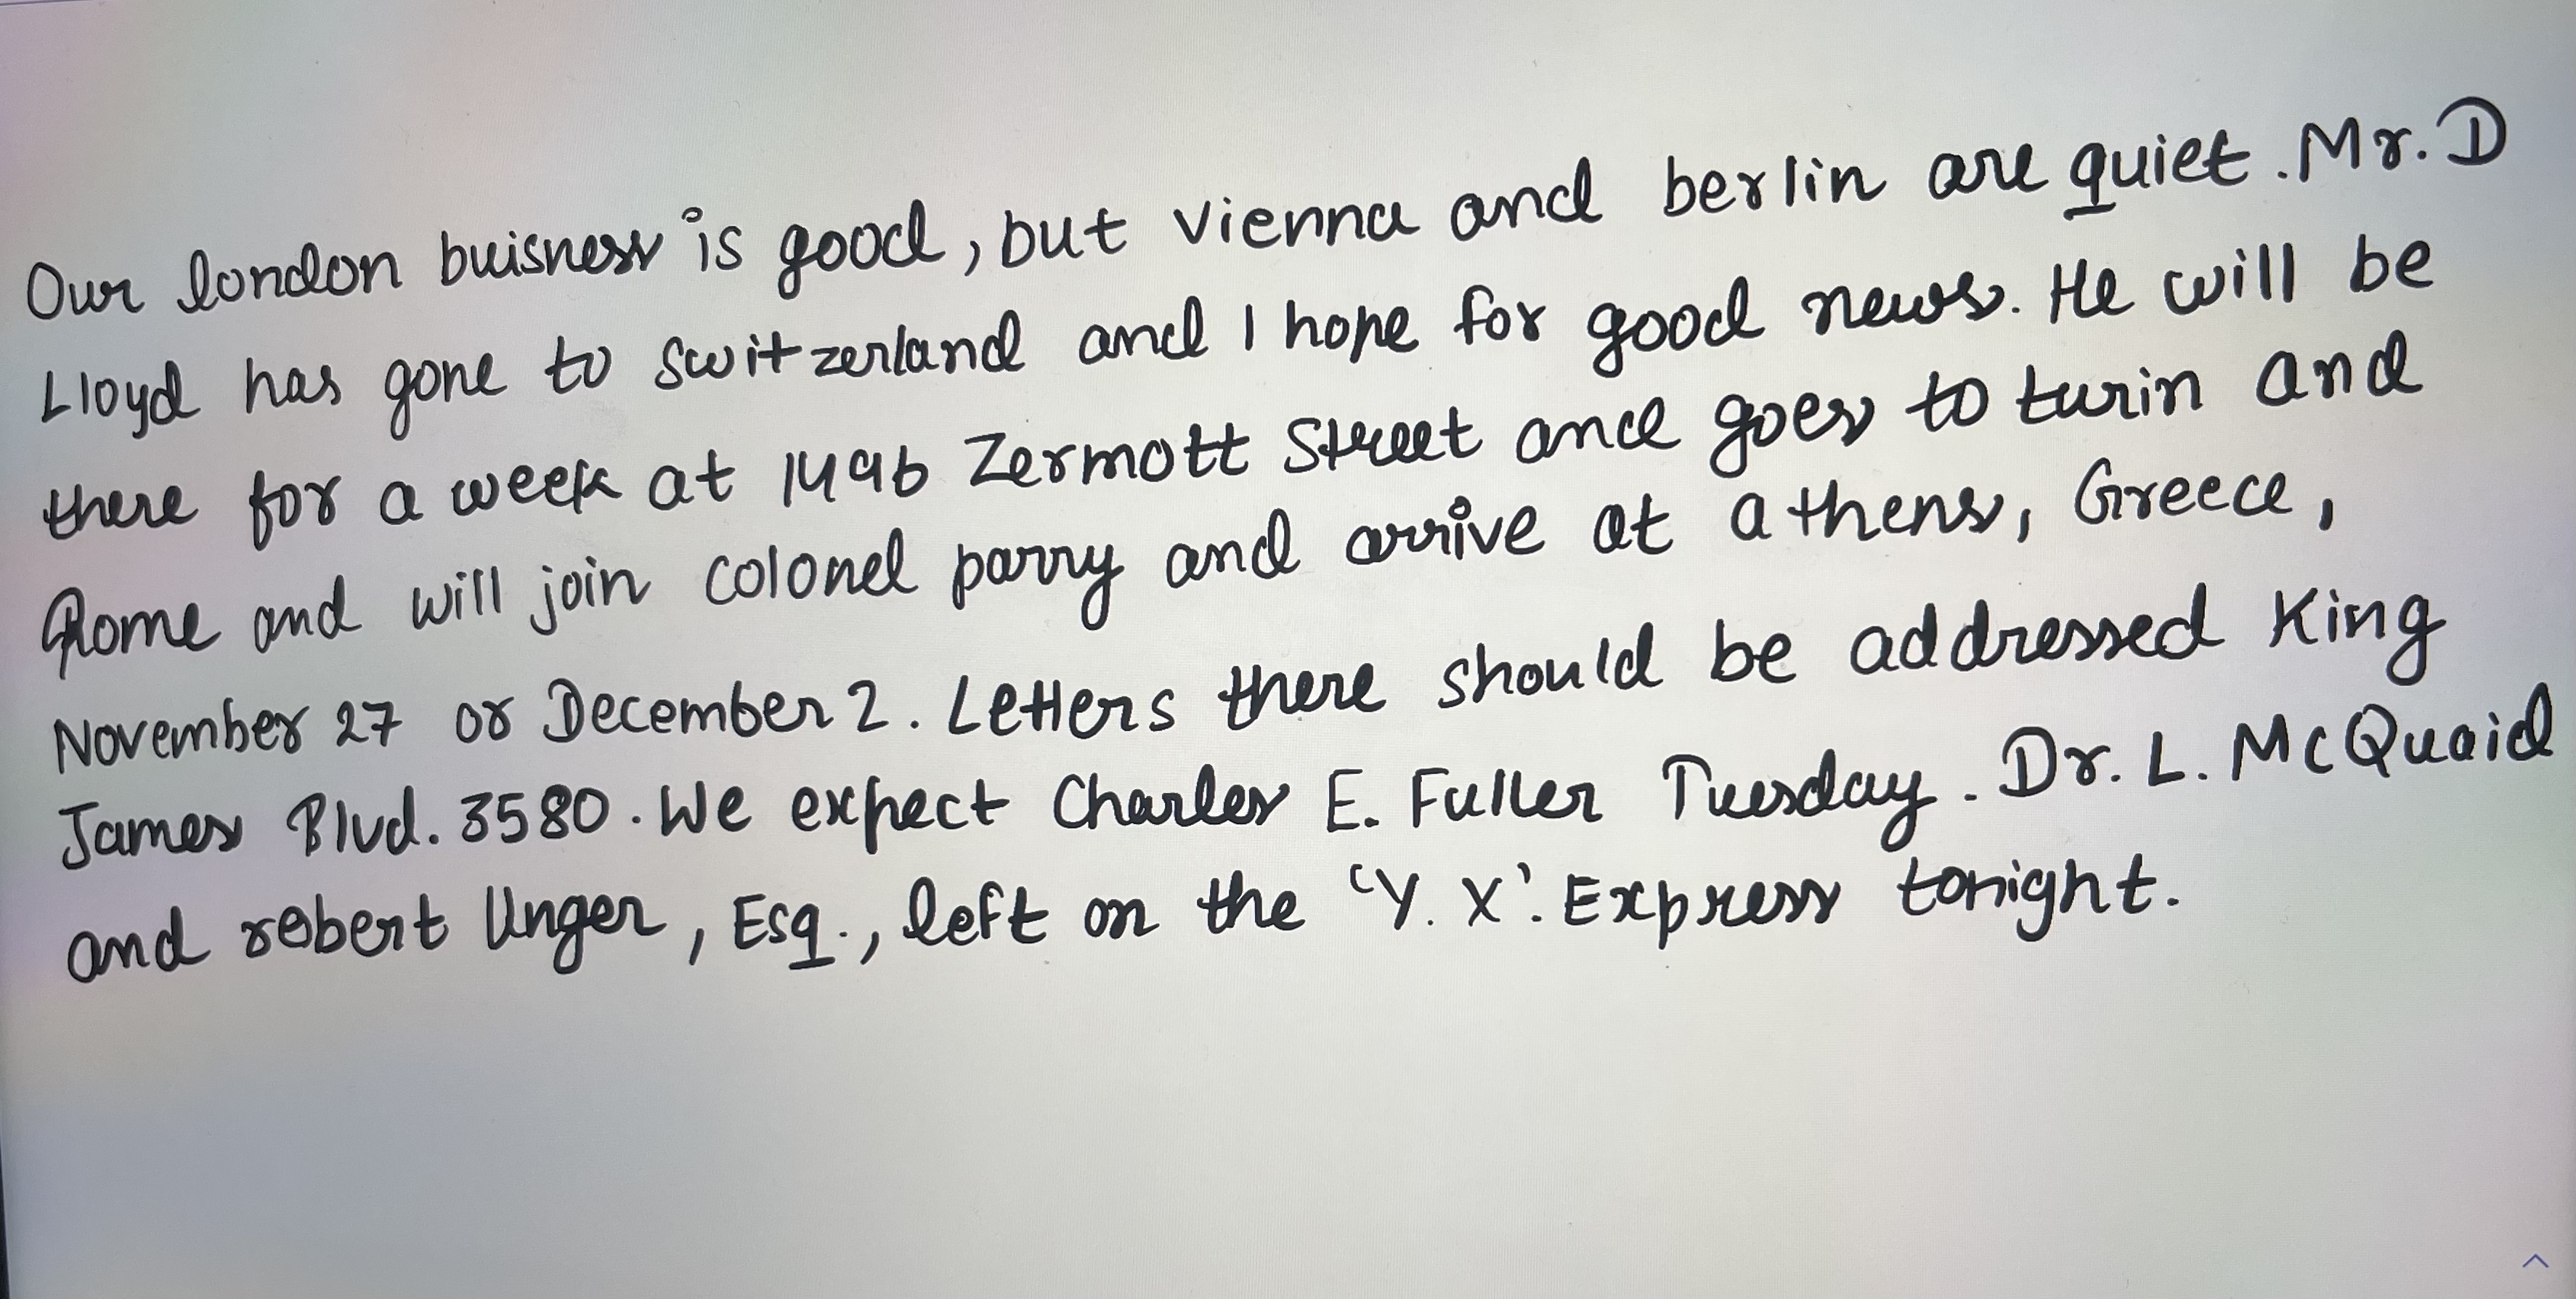 Our london buisness is good, but vienna and berlin are quiet. Mr. D
Lloyd has gone to switzerland and I hope for good news. He will be
there for a week at 1496 Zermott Street and goes to turin and
Rome and will join colonel parry and arrive at athens, Greece,
November 27 or December 2. Letters there should be addressed King
James Blvd. 3580. We expect Charles E. Fuller Tuesday. Dr. L. McQuaid
and robert Unger, Esq., left on the 'Y. X'. Express tonight.